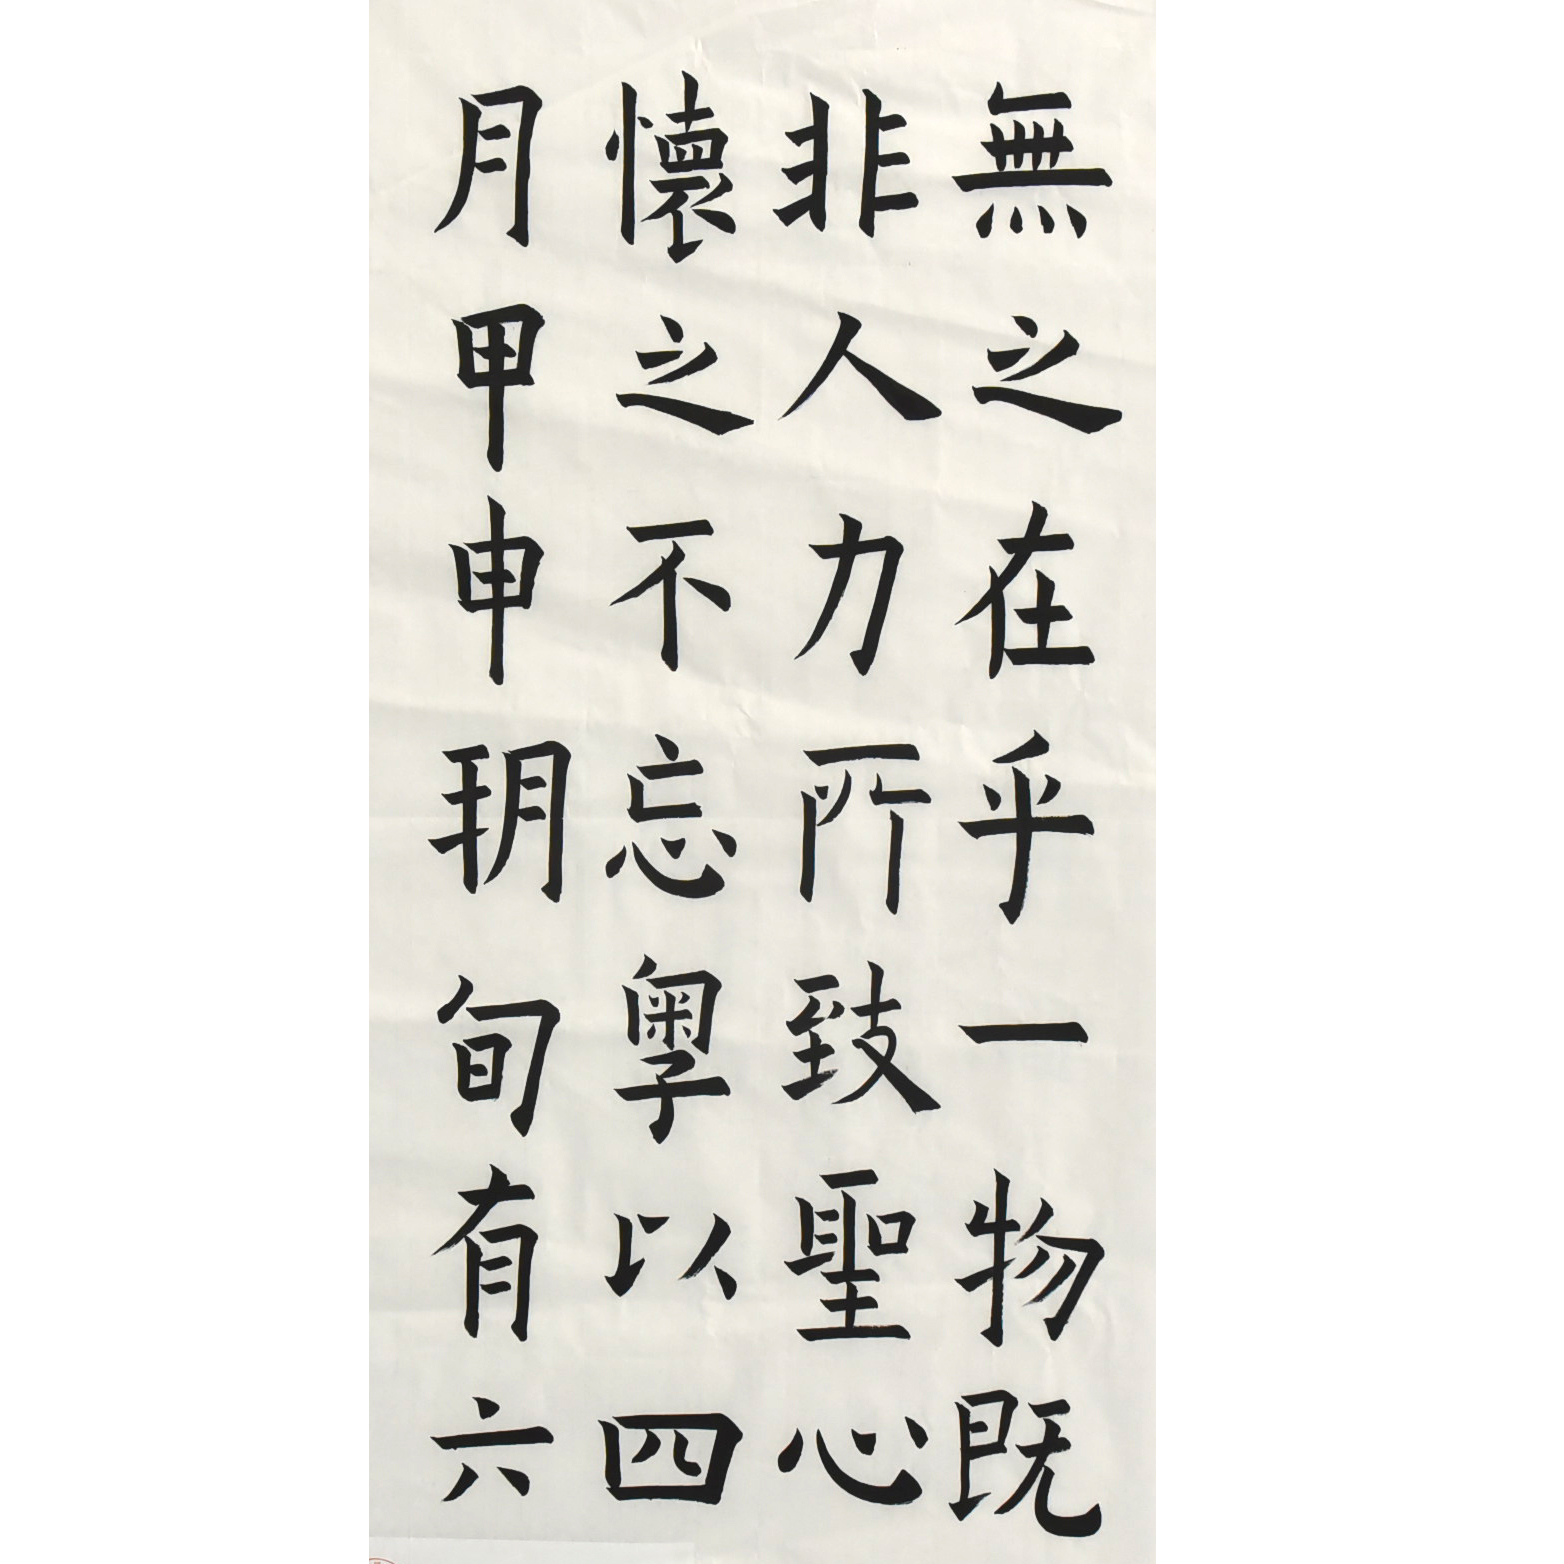 無之在乎一物既
非人力所致聖心
懷之不忘粵以四
月甲申玥旬有六